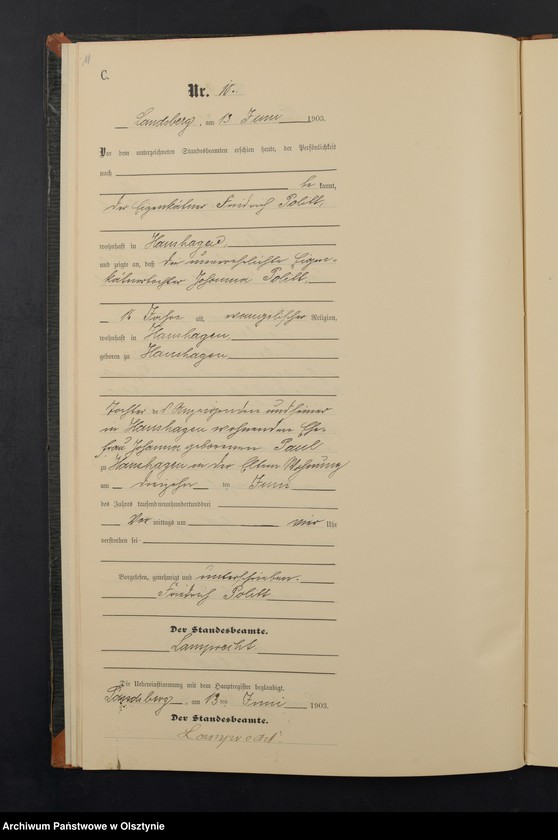 C.
Nr.
Landsberg, am 13 Juni 1903.
Vor dem unterzeichneten Standesbeamten erschien heute, der Persönlichkeit
nach
be kannt,
der Eigenkätner Friedrich Politt,
wohnhaft in Hanshagen,
und zeigte an, daß die unverehelichte Eigen-
kätnertochter Johanna Politt,
Jahre alt, evangelischer Religion,
wohnhaft in Hanshagen,
geboren zu Hanshagen
Tochter des Anzeigenden und seiner
in Hanshagen wohnenden Ehe-
frau Johanna geborenen Paul
zu Hanshagen in der Eltern Wohnung
am dreizehn ten Juni
des Jahres tausendneunhundertunddrei
Vor mittags um vier Uhr
verstorben sei
Vorgelesen, genehmigt und unterschrieben.
Friedrich Politt
Der Standesbeamte.
Lamprecht
Die Uebereinstimmung mit dem Hauptregister beglaubigt.
Landsberg, am 13 ten Juni 1903.
Der Standesbeamte.
Lamprecht
Archiwum Państwowe w Olsztynie